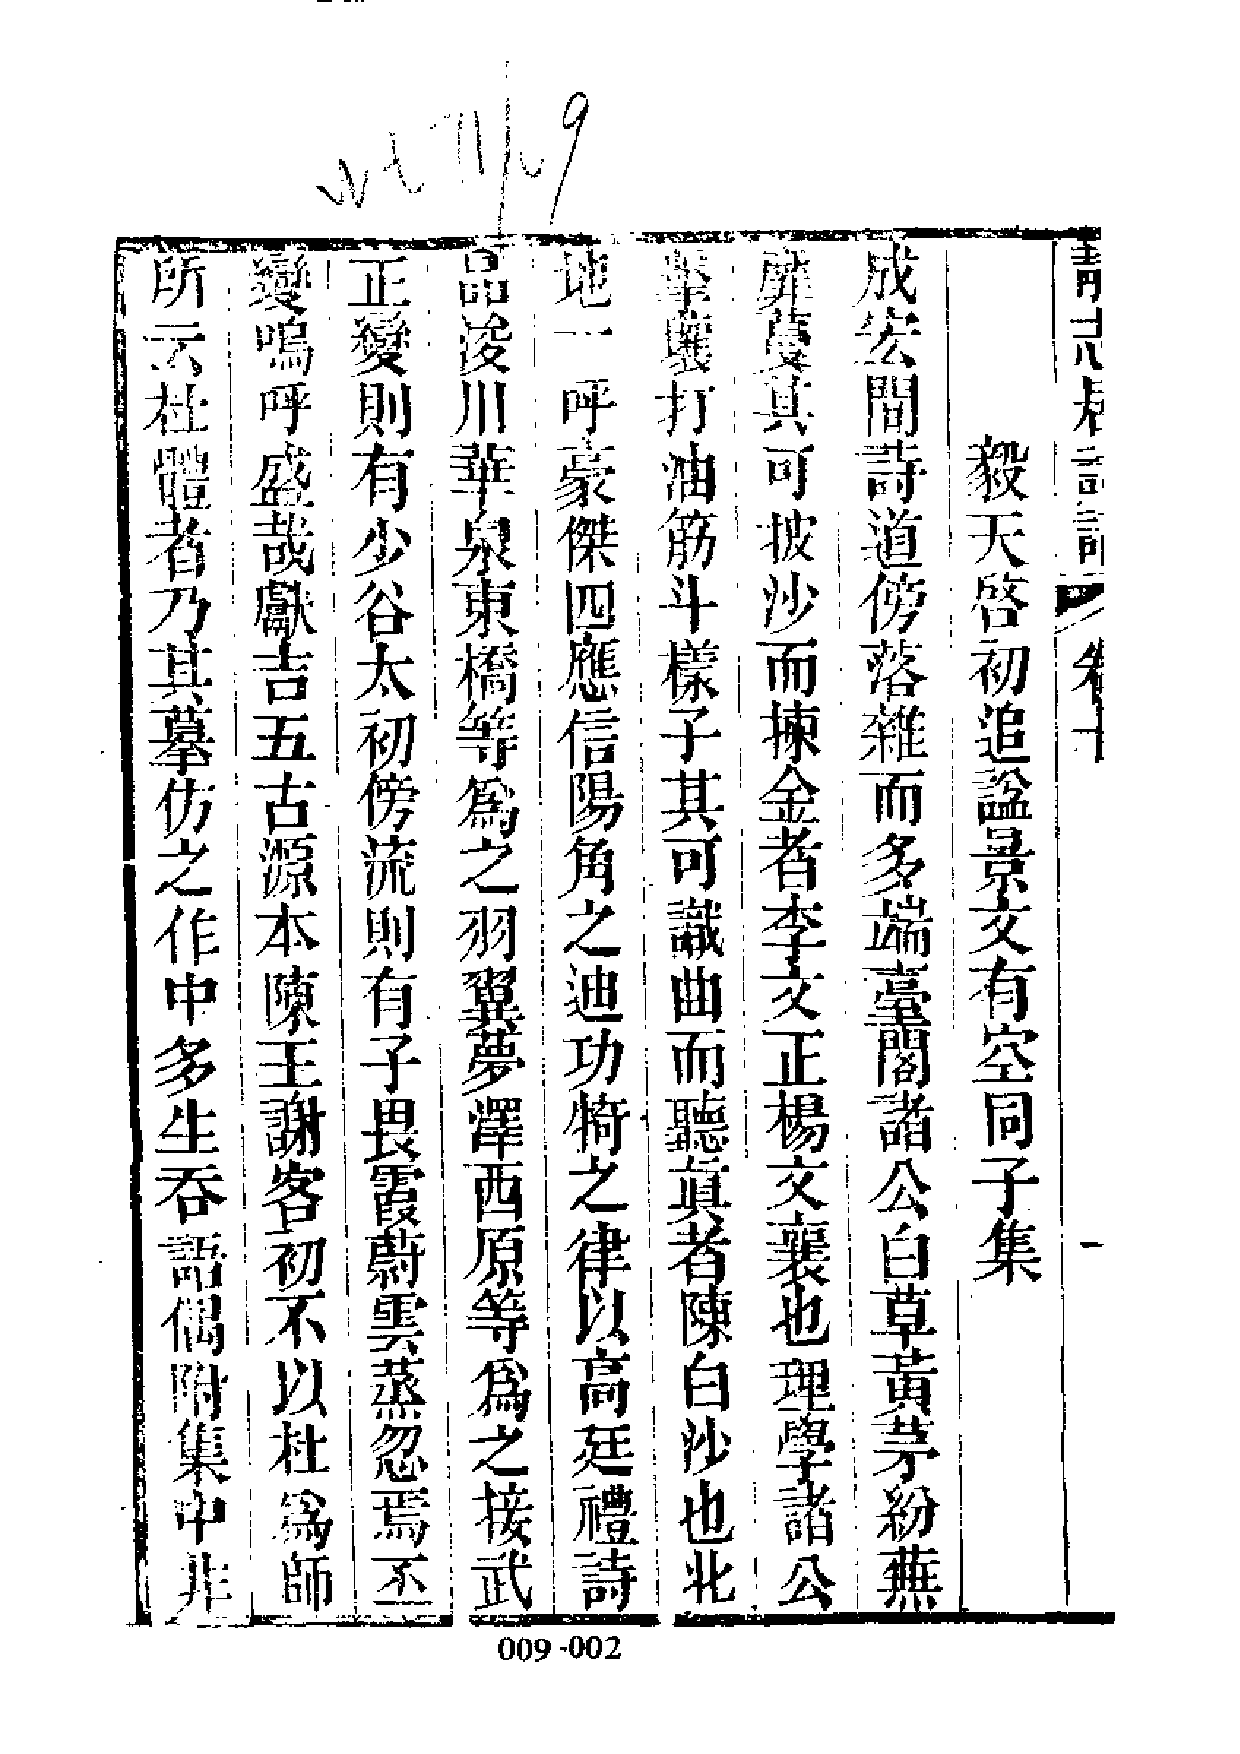 卷十
一
毅天啓初追諡景文有空同子集
成宏間詩道傍落雜而多端臺閣諸公白草黃茅紛蕪
靡蔓其可披沙而揀金者李文正楊文襄也理學諸公
擊壤打油筋斗樣子其可識曲而聽眞者陳白沙也北
地一呼豪傑四應信陽角之迪功犄之律以高廷禮詩
品浚川華泉東橋等爲之羽翼夢澤西原等爲之接武
正變則有少谷太初傍流則有子畏霞蔚雲蒸忽焉丕
變嗚呼盛哉獻吉五古源本陳王謝客初不以杜爲師
所云杜體者乃其摹仿之作中多生吞語偶附集中非
009-002